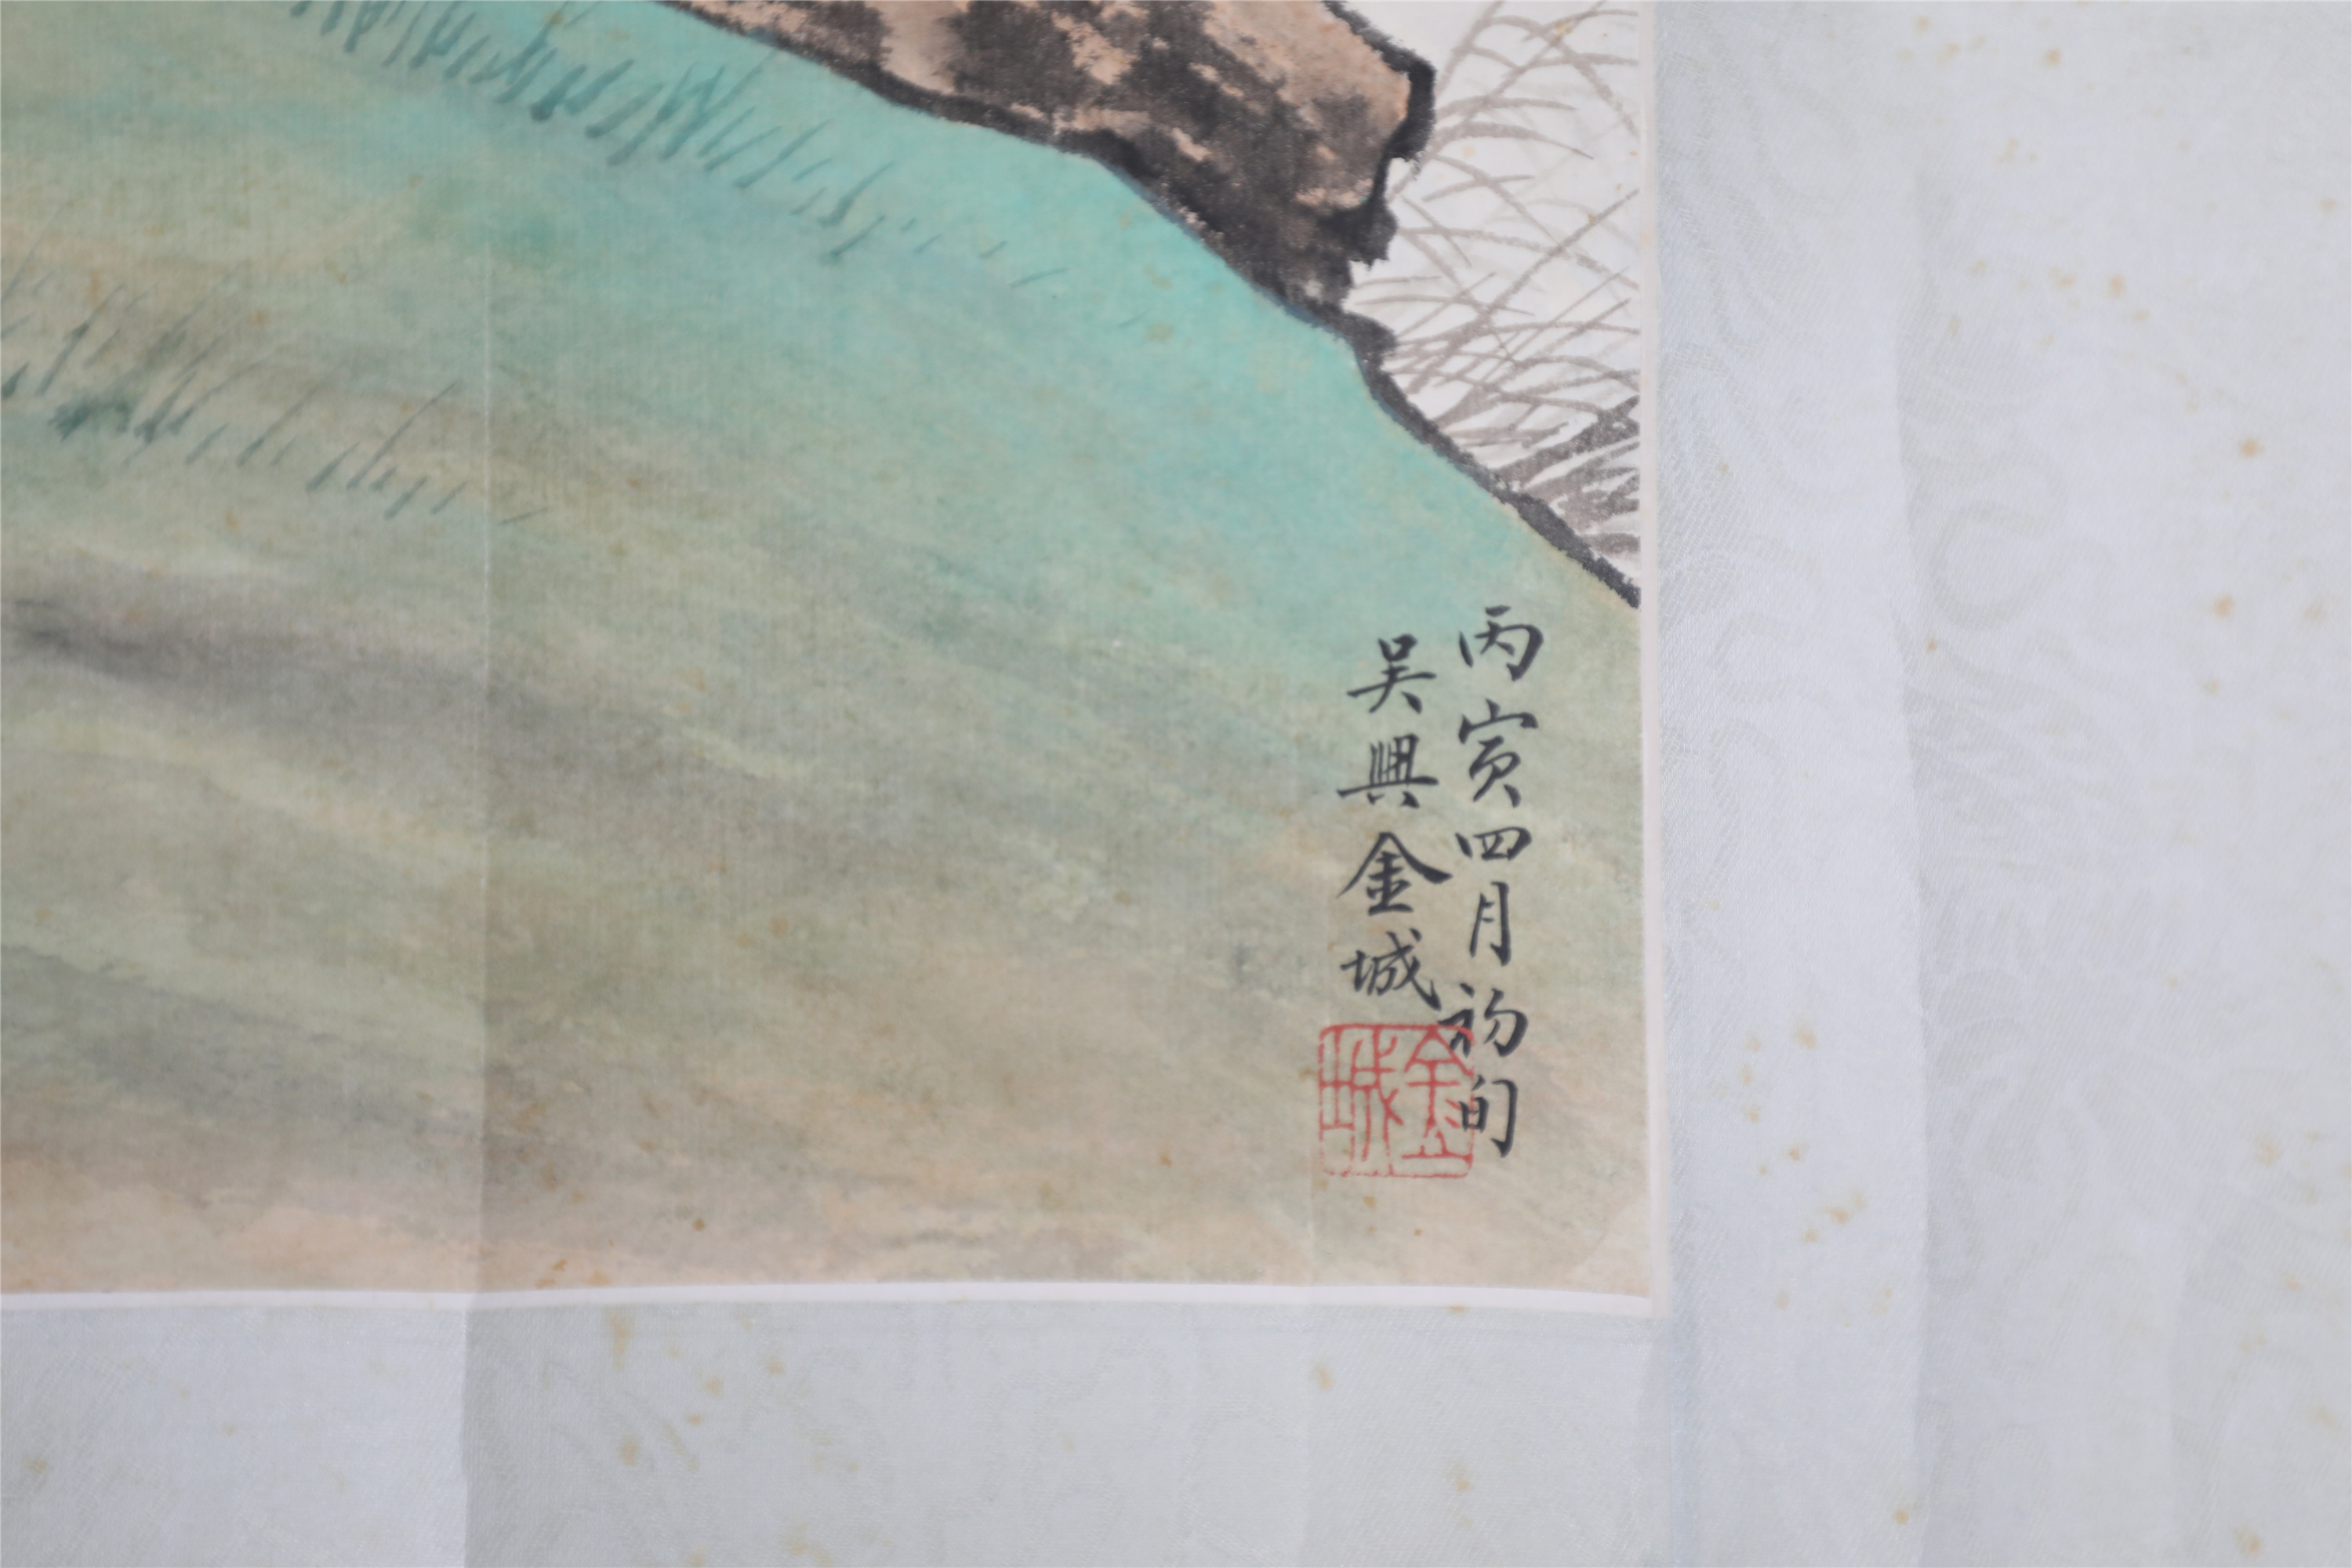 丙寅四月初旬
吴興金城
金城